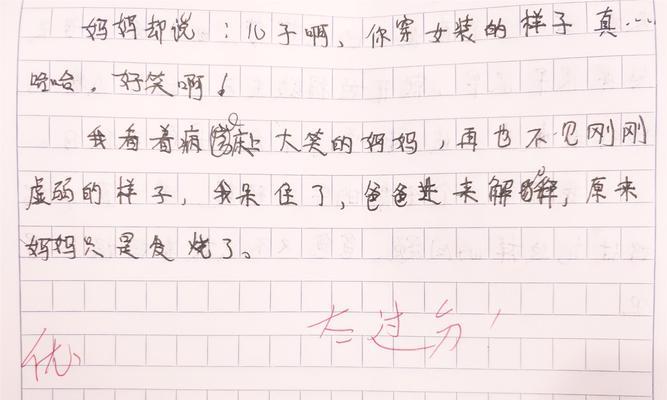 妈妈却说：儿子啊，你穿女装的样子真…
哈哈，好笑啊！
我看着病床上大笑的妈妈，再也不见刚刚
虚弱的样子，我呆住了，爸爸进来解释，原来
妈妈只是发烧了。
太过分！
优